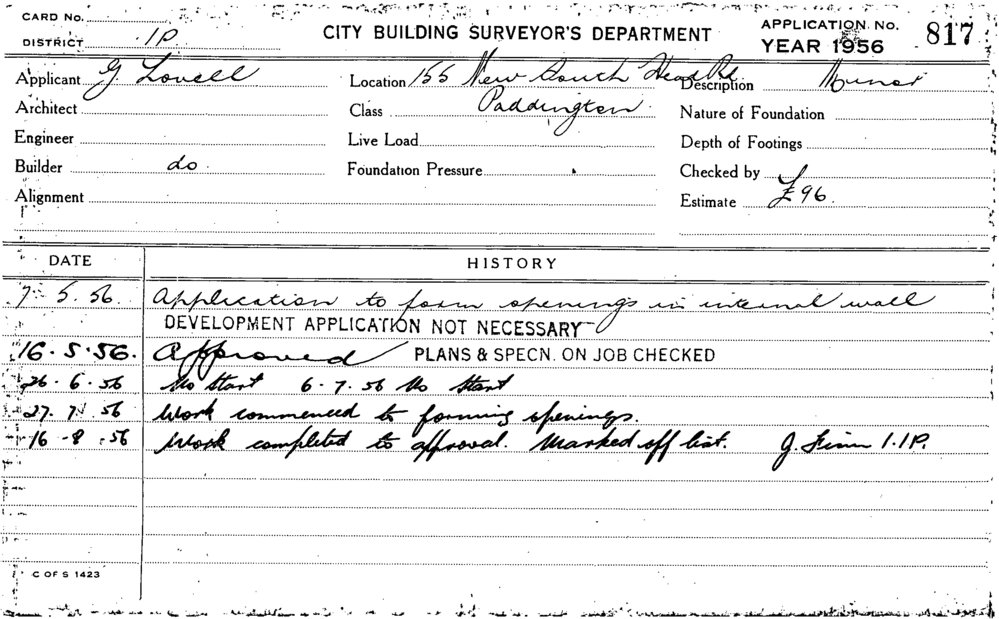 CARD No.
DISTRICT 1P
CITY BUILDING SURVEYOR'S DEPARTMENT
APPLICATION No. 817
YEAR 1956
Applicant G Lovell
Location 155 New South Head Rd
Paddington
Description Minor
Architect
Class
Nature of Foundation
Engineer
Live Load
Depth of Footings
Builder do.
Foundation Pressure
Checked by
Alignment
Estimate £96.
DATE HISTORY
7. 5. 56. Application to form openings in internal wall
DEVELOPMENT APPLICATION NOT NECESSARY
16. 5. 56. Approved PLANS & SPECN. ON JOB CHECKED
26. 6. 56 No Start 6. 7. 56 No Start
27. 7. 56 Work commenced to forming openings.
16 - 8 . 56 Work completed to approval. Marked off list. J. 1.1P.
C OF S 1423